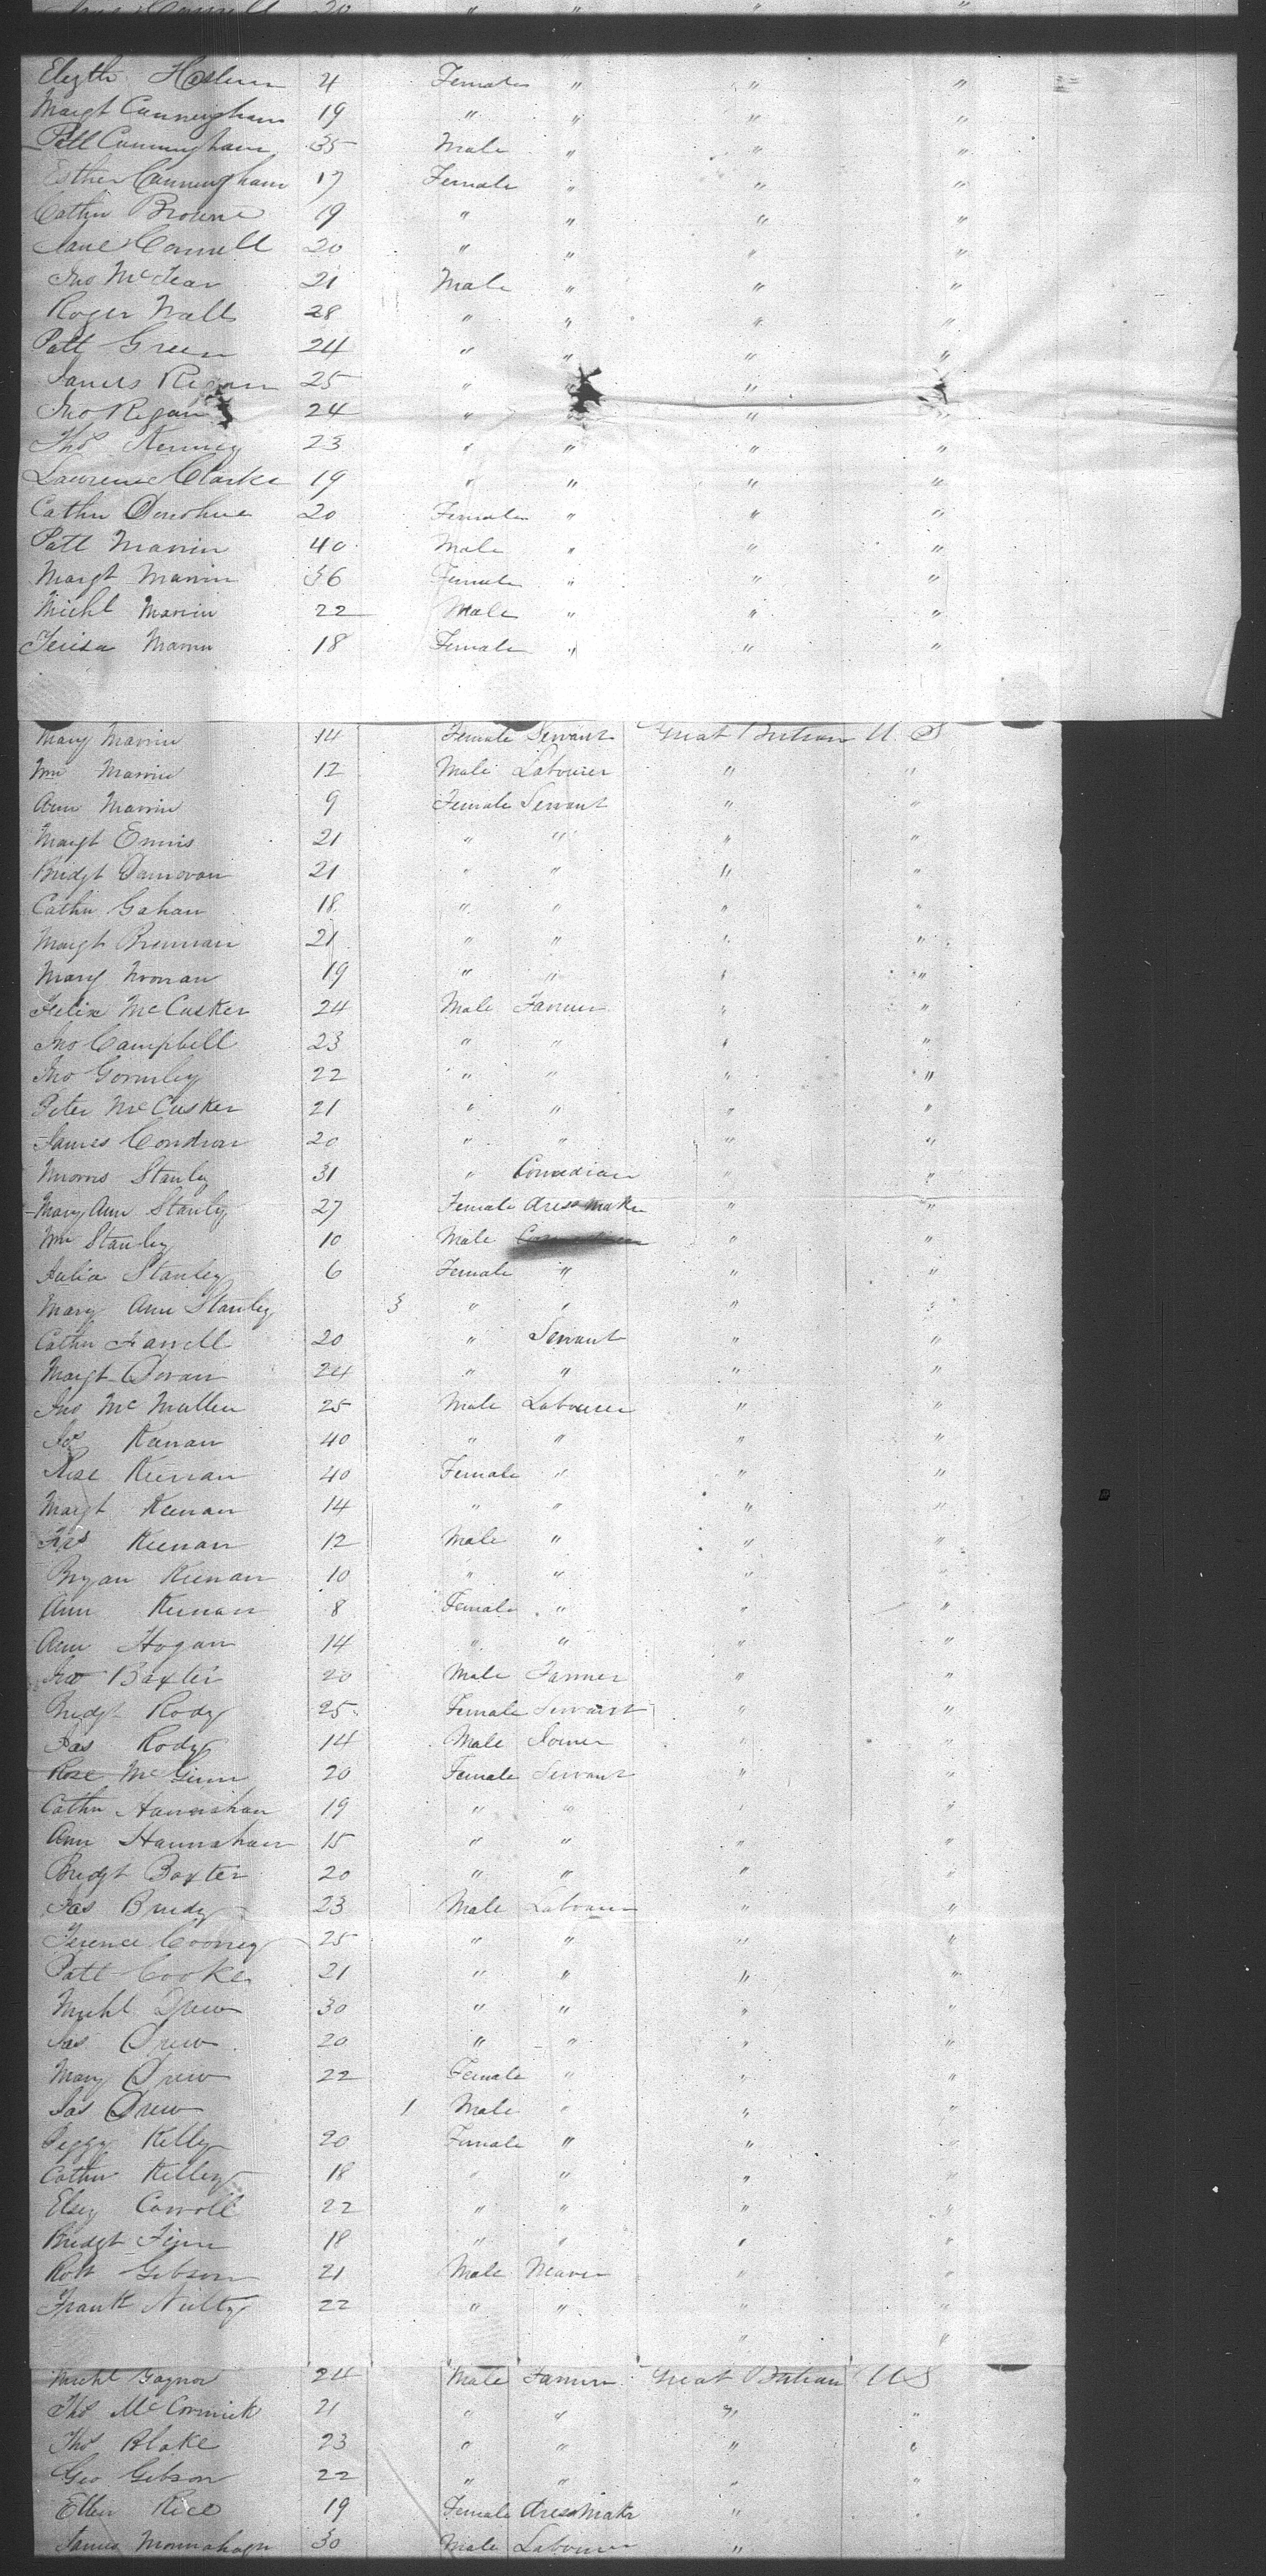 20 " " " "
Female " " "
Margt Cunningham 19 " " " "
Patt Cunningham 35 Male " " "
Esther Cunningham 17 Female " " "
Cathn Browne 19 " " " "
Jane Connell 20 " " " "
Jno 21 Male " " "
Roger 28 " " " "
Patt Green 24 " " " "
James Regan 25 " " "
Jno Regan 24 " " " "
Thos Kenney 23 " " " "
Lawrence Clarke 19 " " " "
Cathn Donohue 20 Female " " "
Patt 40 Male " " "
Margt 36 Female " " "
Michl 22 Male " " "
Teresa 18 Female " " "
Mary 14 Female Servant Great Britian U S
Wm 12 Male Labourer " "
Ann 9 Female Servant " "
Margt Ennis 21 " " " "
Bridgt 21 " " " "
Cathn Gahan 18 " " " "
Margt Brennan 21 " " " "
Mary Noonan 19 " " " "
Felix McCusker 24 Male Farmer " "
Jno Campbell 23 " " " "
Jno Gormley 22 " " " "
Peter McCusker 21 " " " "
James Condron 20 " " " "
Stanley 31 " Comedian " "
Mary Ann Stanley 27 Female dress Maker " "
Wm Stanley 10 Male " "
Julia Stanley 6 Female " " "
Mary Ann Stanley 3 " " " "
Cathn Farrell 20 " Servant " "
Margt Doran 24 " " " "
Jno McMullen 25 Male Labourer " "
Keenan 40 " " " "
Rose Keenan 40 Female " " "
Margt Keenan 14 " " " "
Jas Keenan 12 Male " " "
Bryan Keenan 10 " " " "
Ann Keenan 8 Female " " "
Ann Hogan 14 " " " "
Baxter 20 Male Farmer " "
Bridgt Rody 25 Female Servant " "
Jas Rody 14 Male Joiner " "
Rose McGinn 20 Female Servant " "
Cathn 19 " " " "
Ann Hannahan 15 " " " "
Bridgt Baxter 20 " " " "
Jas 23 Male Labourer " "
Terence Cooney 25 " " " "
Patt Cooke 21 " " " "
Michl Drew 30 " " " "
Jas Drew 20 " " " "
Mary Drew 22 Female " " "
Jas Drew 1 Male " " "
Peggy Kelly 20 Female " " "
Cathn Kelley 18 " " " "
Carroll 22 " " " "
Bridgt 18 " " " "
Robt Gibson 21 Male Weaver " "
Frank 22 " " " "
" "
Michl Gaynor 24 Male Farmer Great Britian U S
Thos McCormick 21 " " " "
Thos Blake 23 " " " "
Geo Gibson 22 " " " "
Ellen Rice 19 Female dress Makr "
James 30 Male Labourer "